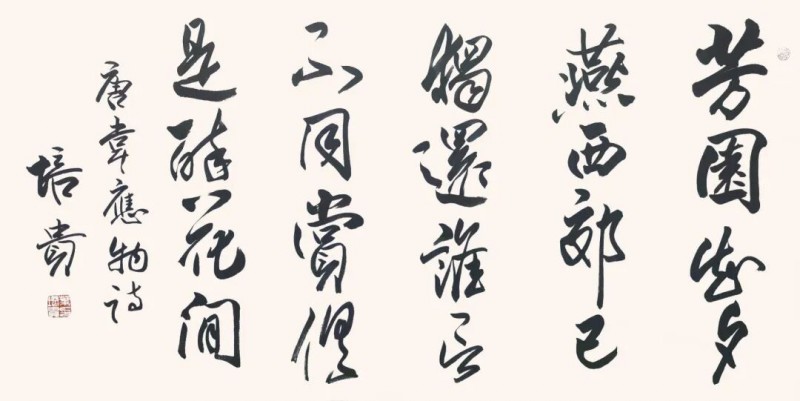 芳園知夕
燕西郊已
獨還誰言
不同賞俱
是醉花間
唐韋應物詩
培貴